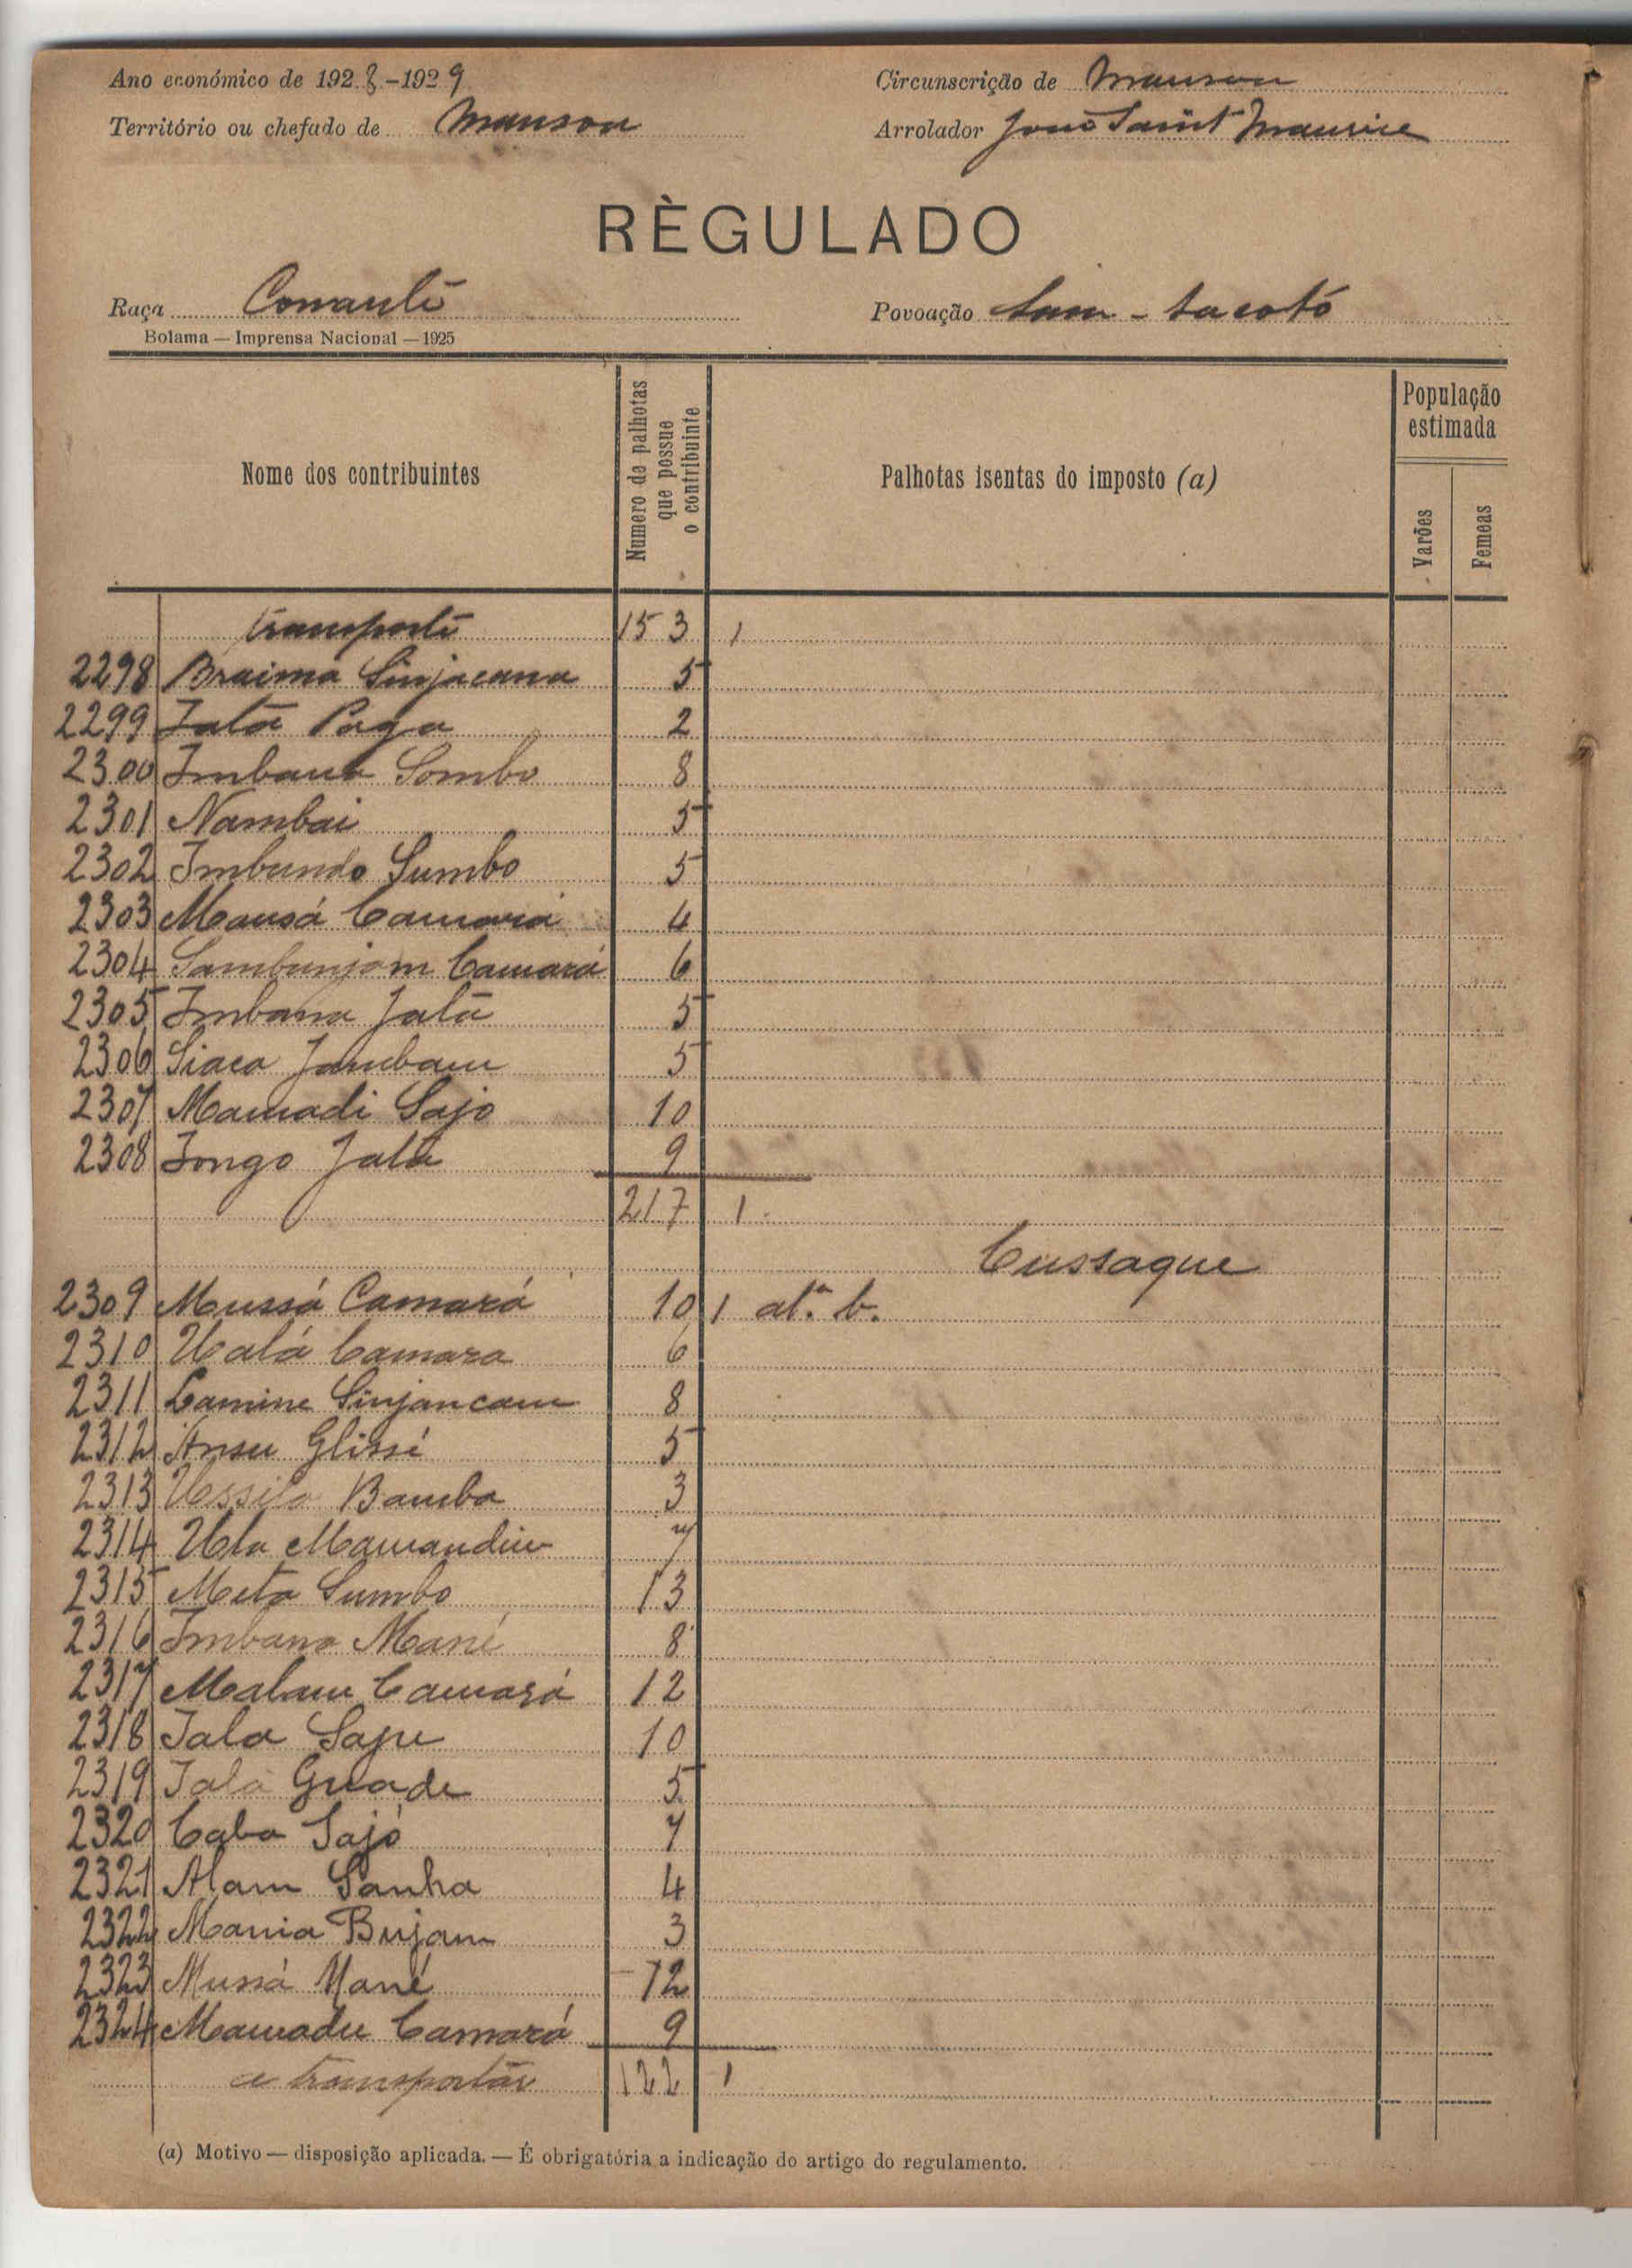 Ano económico de 1928-1929
Circunscrição de Mansoa
Território ou chefado de Mansoa
Arrolador João Saint Maurice
RÈGULADO
Raça
Povoação
Bolama — Imprensa Nacional — 1925
Nome dos contribuintes
Numero da palhotas que possue o contribuinte
Palhotas isentas do imposto (a)
População estimada
Varões
Femeas
transporte 153 1
2298 Braima Sinjacana 5
2299 Jatá 2
2300 Imbana Sombo 8
2301 Nambai 5
2302 Imbundo Sumbo 5
2303 Mansá Camará 4
2304 Sambunjom Camará 6
2305 Imbana Jatá 5
2306 Siaca Jambam 5
2307 Mamadi Sajo 10
2308 Jongo Jatá 9
217 1
Cussaque
2309 Mussá Camará 10 1 al.ª b.
2310 Ualá Camara 6
2311 Lamine Sinjancam 8
2312 Ansu Glissé 5
2313 Bamba 3
2314 Mamandim 7
2315 Meta Sumbo 13
2316 Imbana Mané 8
2317 Malam Camará 12
2318 Jala 10
2319 Jala Guade 5
2320 Caba Sajó 7
2321 Alam Sanha 4
2322 Mania Bujam 3
2323 Mussá Mané 12
2324 Mamadu Camará 9
a transportar 122 1
(a) Motivo — disposição aplicada. — É obrigatória a indicação do artigo do regulamento.